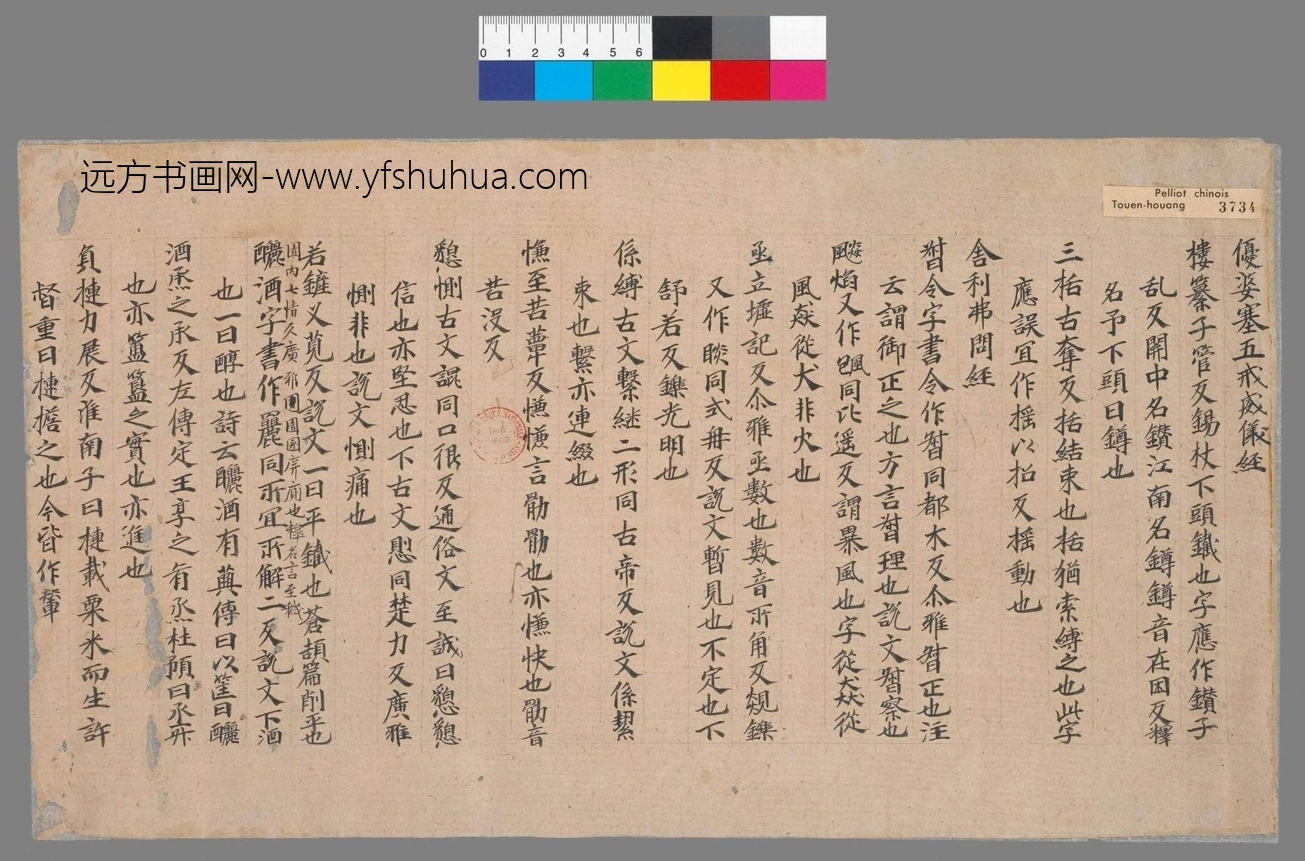 远方书画网-www.yfshuhua.com
Pelliot chinois
Touen-houang 3734
0 1 2 3 4 5 6
優婆塞五戒威儀經
樓纂子管反錫杖下頭鐵也字應作鑽子
乱反開中名鑽江南名鐏鐏音在困反釋
名予下頭曰鐏也
三栝古奪反栝結束也栝猶索縛之也此字
應誤冝作揺以招反揺動也
舍利弗問經
督令字書令作督同都木反尒雅督正也注
云謂御正之也方言督理也說文督察也
飈焰又作飇同比遥反謂暴風也字從猋從
風猋從犬非火也
亟立墟記反尒雅亟數也數音所角反覢鑠
又作睒同式冉反說文暫見也不定也下
舒若反鑠光明也
係縛古文繫継二形同古帝反說文係絜
束也繫亦連綴也
憔至苦葷反憔憔言勩勩也亦憔快也勩音
苦没反
懇惻古文詪同口很反通俗文至誠曰懇懇
信也亦堅忍也下古文恖同楚力反廣雅
惻非也說文惻痛也
若鏟叉莧反說文一曰平鐵也蒼頡篇削平也
圊内七情久廣雅圊圂圂庌廁也釋名言至穢
釃酒字書作麗同所冝所解二反說文下酒
也一曰醇也詩云釃酒有藇傳曰以筐曰釃
酒烝之承反左傳定王享之有烝杜預曰烝升
也亦簠簋之實也亦進也
負揵力展反淮南子曰揵載粟米而生許
督重曰揵擔之也今皆作輦